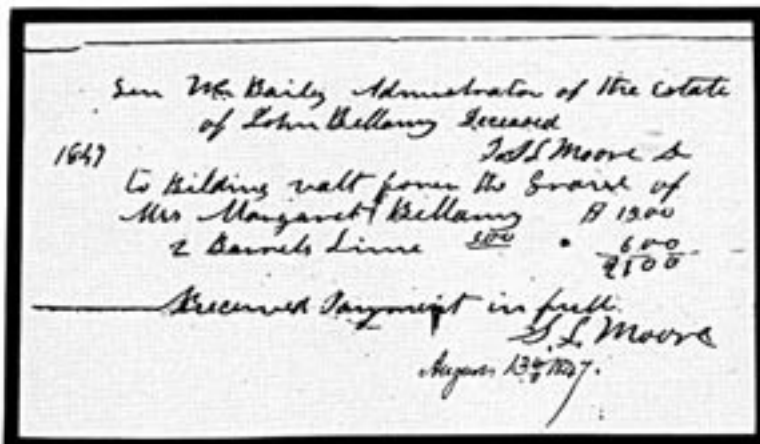 Gen Wm Baily Admnistrator of the Estate
of John Bellamy Deceased
1847 To S L Moore Dr
to Bilding valt over the Grave of
Mrs Margaret Bellamy $ 15.00
2 Barrels Lime 3.00 " 6.00
Received Payment in full
S. L. Moore
August 13th 1847.